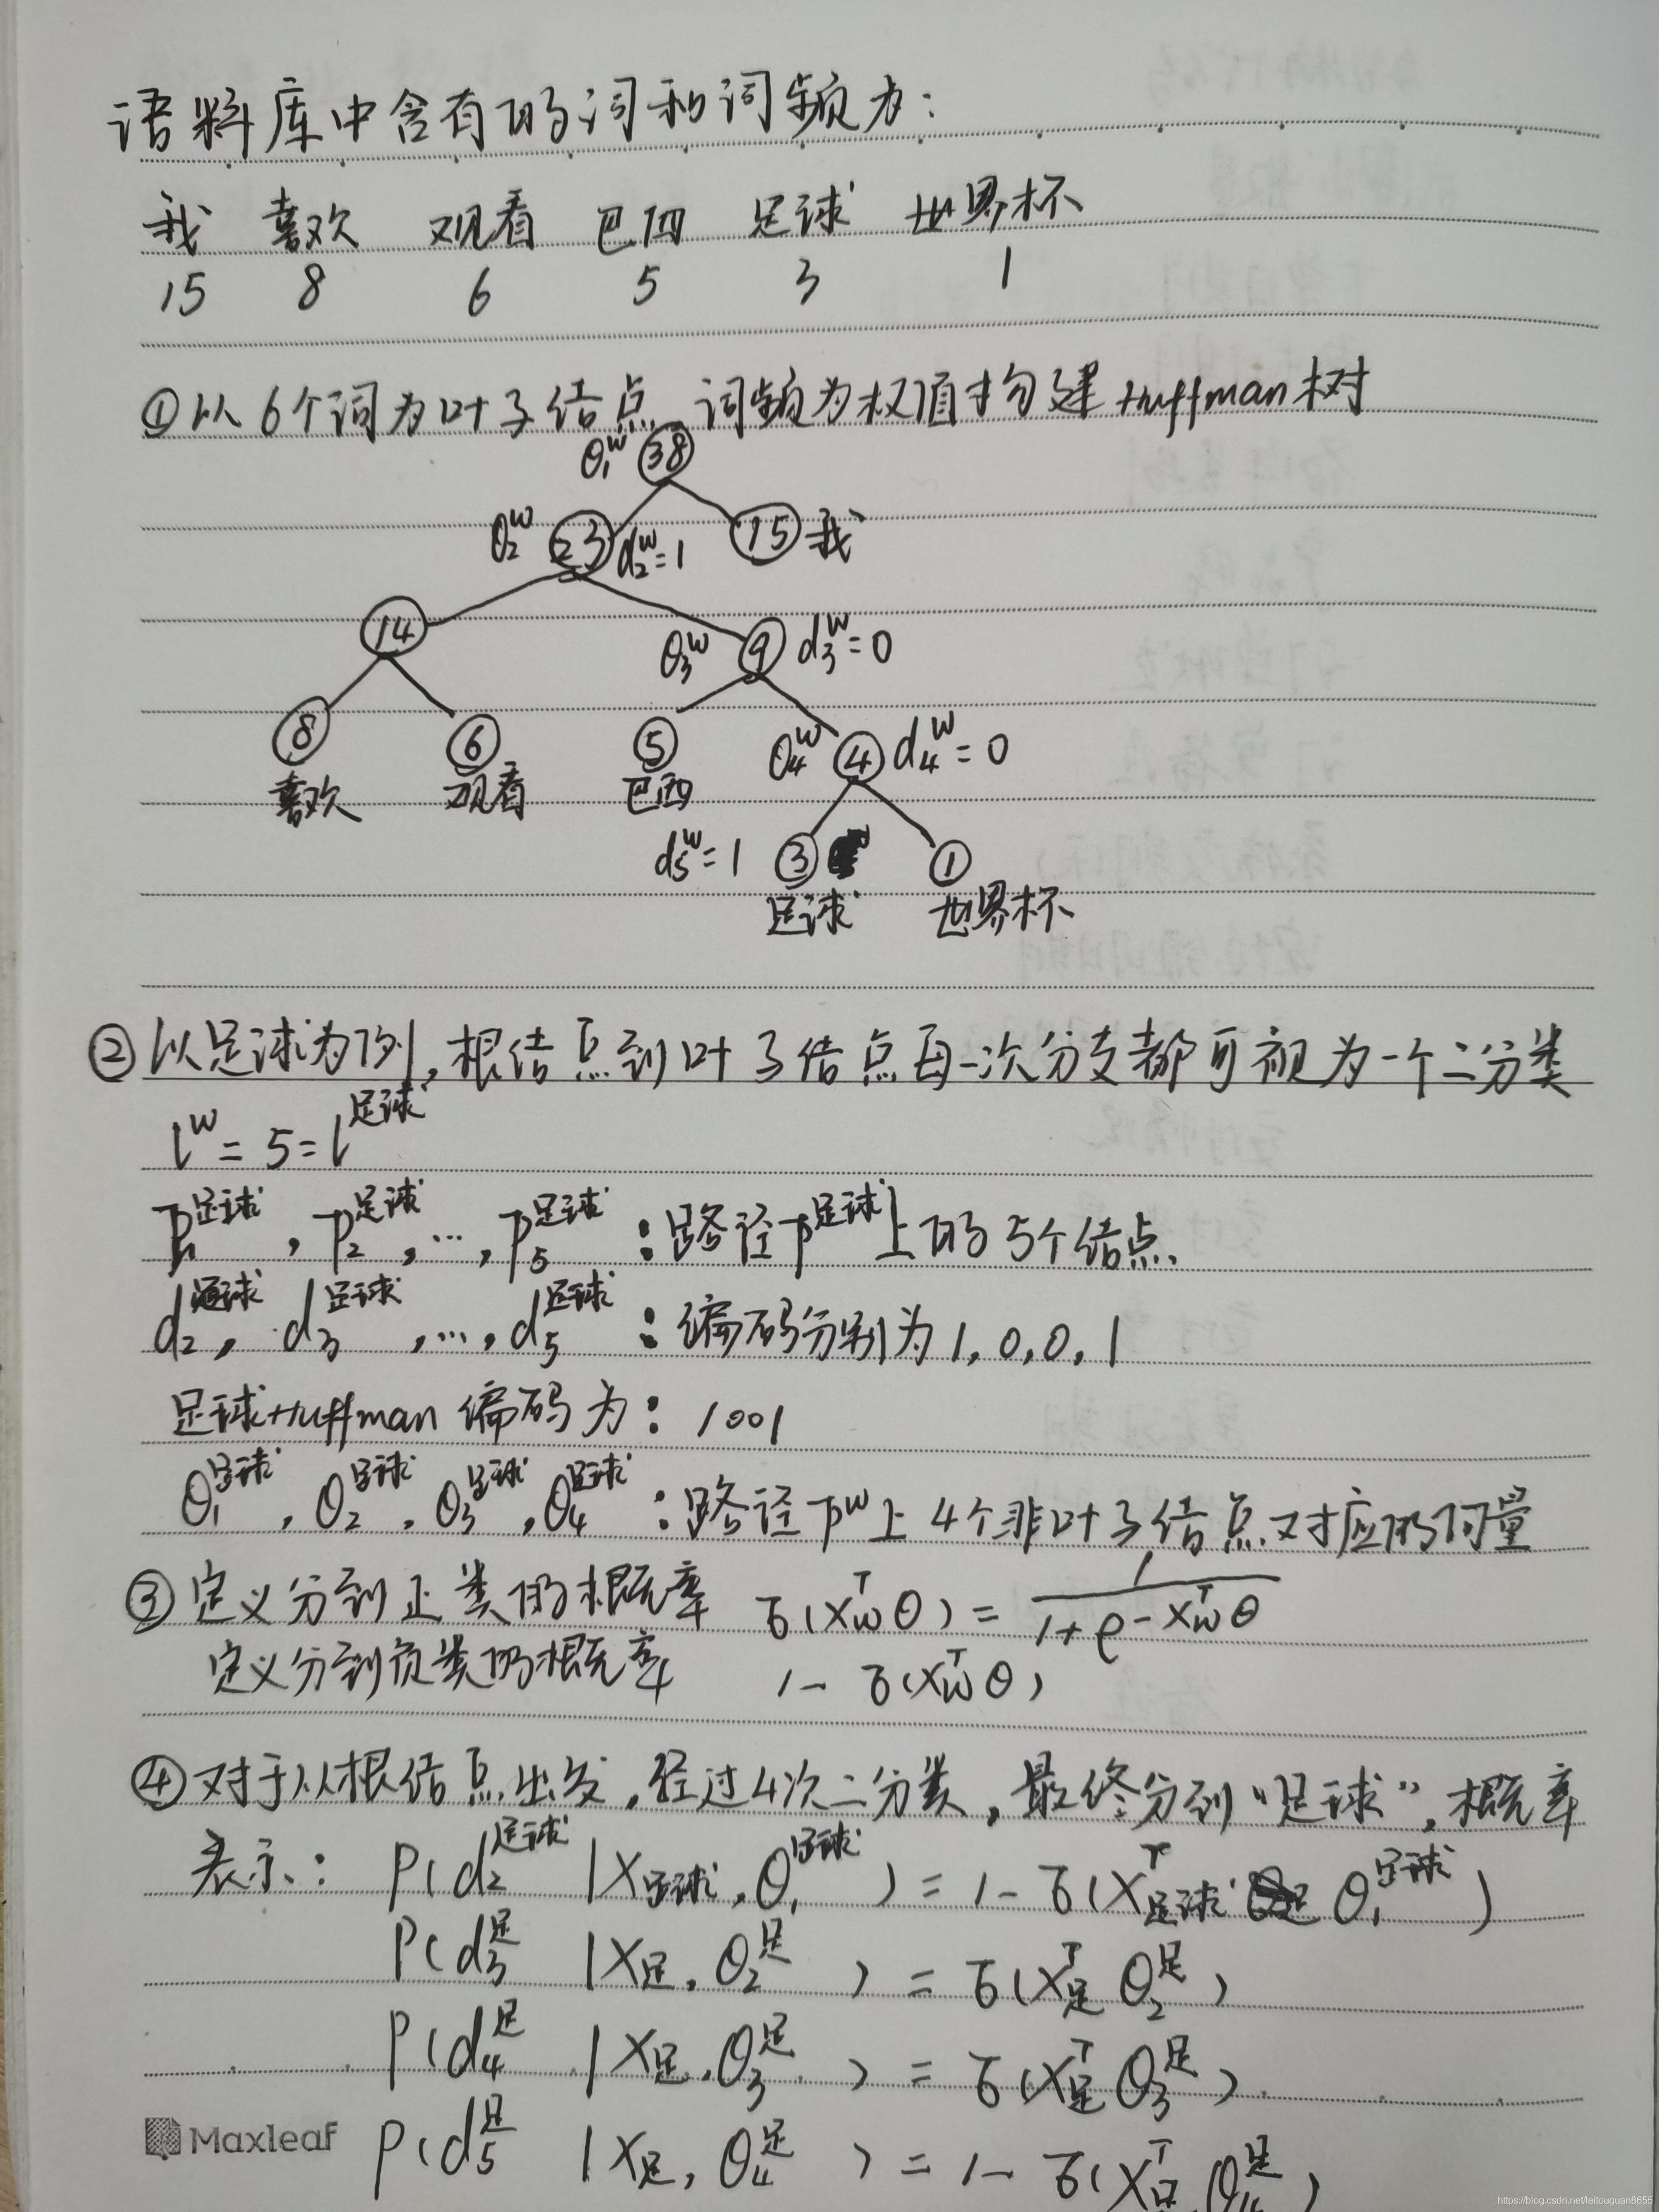 语料库中含有的词和词频为：
我 喜欢 观看 巴西 足球 世界杯
15 8 6 5 3 1
①以6个词为叶子结点，词频为权值构建Huffman树
θ₁ʷ 38
θ₂ʷ 23 d₂ʷ=1 15 我
14 θ₃ʷ 9 d₃ʷ=0
8 6 5 θ₄ʷ 4 d₄ʷ=0
喜欢 观看 巴西
d₅ʷ=1 3 1
足球 世界杯
②以足球为例，根结点到叶子结点每一次分支都可视为一个二分类
lʷ=5=l^足球
p₁^足球，p₂^足球，…，p₅^足球：路径p^足球上的5个结点
d₂^足球，d₃^足球，…，d₅^足球：编码分别为1,0,0,1
足球Huffman编码为：1001
θ₁^足球，θ₂^足球，θ₃^足球，θ₄^足球：路径pʷ上4个非叶子结点对应的向量
③定义分到正类的概率 σ(x_w^T θ) = 1/(1+e^(-x_w^T θ))
定义分到负类的概率 1-σ(x_w^T θ)
④对于从根结点出发，经过4次二分类，最终分到“足球”，概率
表示：p(d₂^足球 |x_足球, θ₁^足球) = 1-σ(x_足球^T θ₁^足球)
p(d₃^足 |x_足, θ₂^足) = σ(x_足^T θ₂^足)
p(d₄^足 |x_足, θ₃^足) = σ(x_足^T θ₃^足)
p(d₅^足 |x_足, θ₄^足) = 1-σ(x_足^T θ₄^足)
Maxleaf
https://blog.csdn.net/leitouguan8655